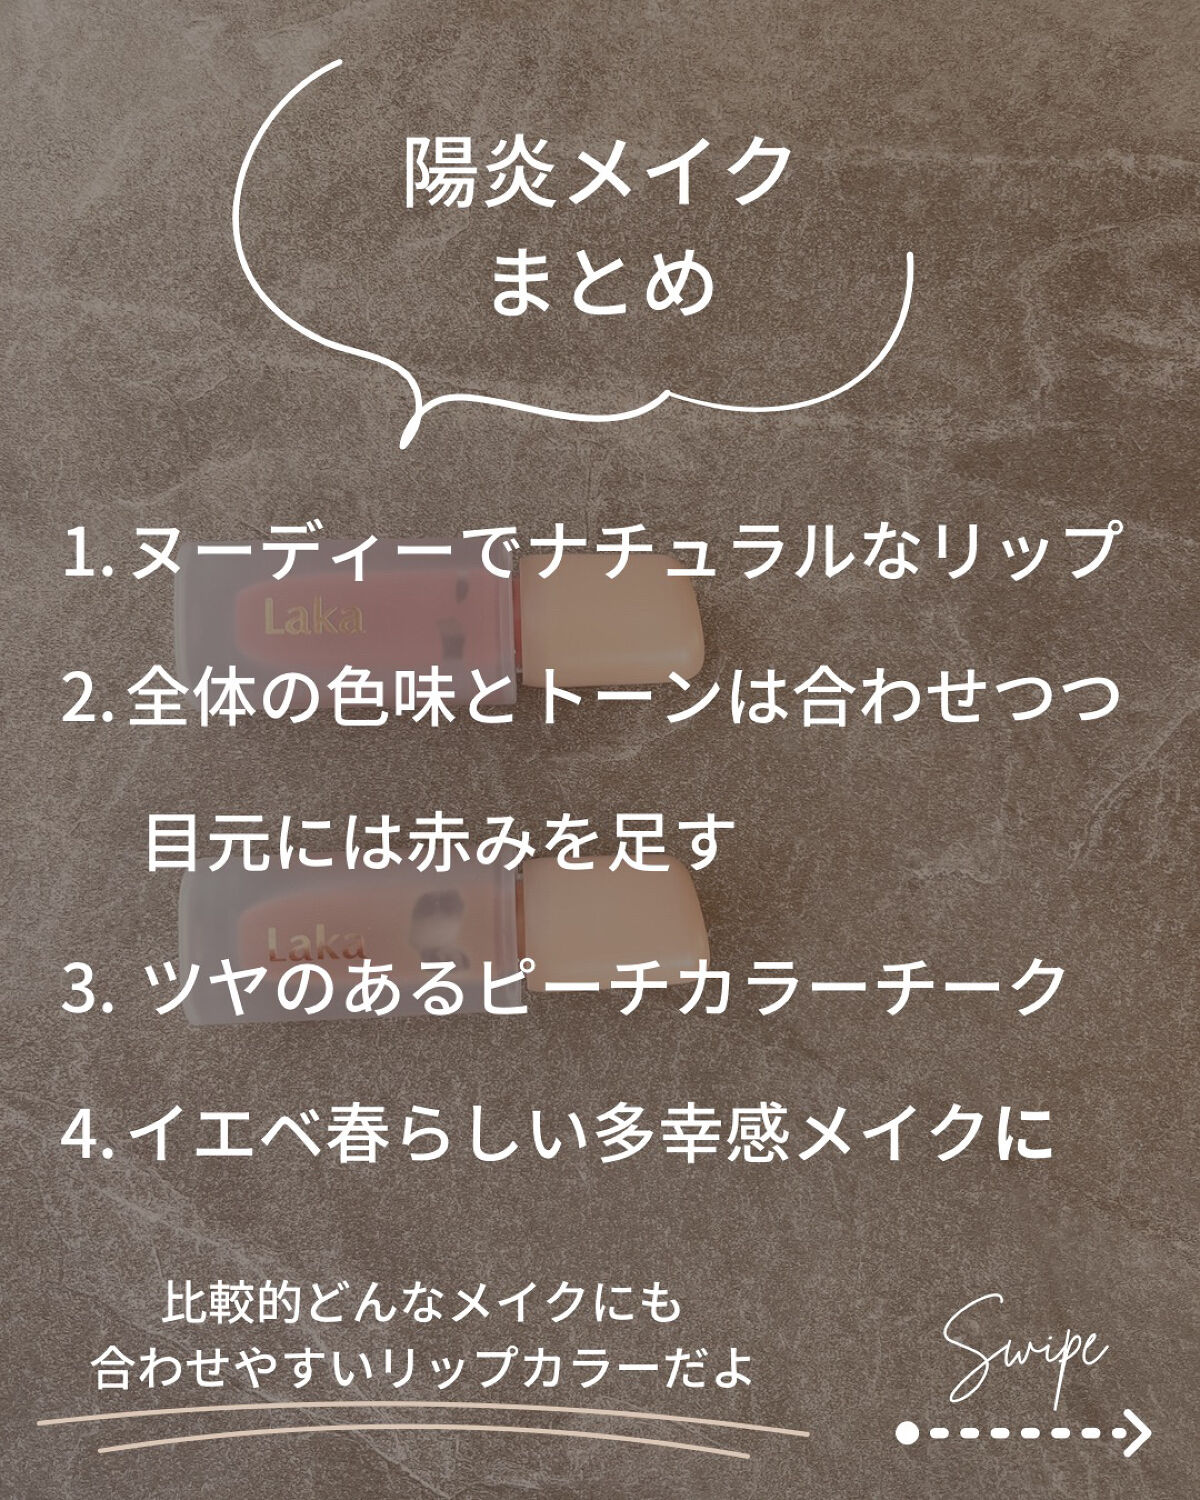 陽炎メイク
まとめ
1. ヌーディーでナチュラルなリップ
Laka
2. 全体の色味とトーンは合わせつつ
目元には赤みを足す
Laka
3. ツヤのあるピーチカラーチーク
4. イエベ春らしい多幸感メイクに
比較的どんなメイクにも
合わせやすいリップカラーだよ
Swipe